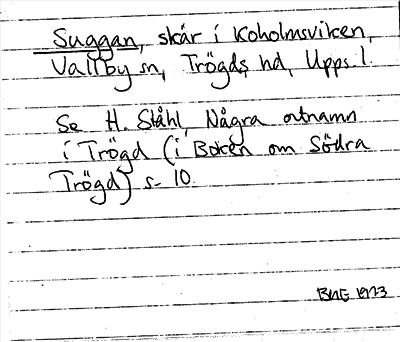 Suggan, skär i Koholmsviken,
Vallby sn, Trögds hd, Upps. l.
Se H. Ståhl, Några ortnamn
i Trögd (i Boken om Södra
Trögd) s. 10.
1973